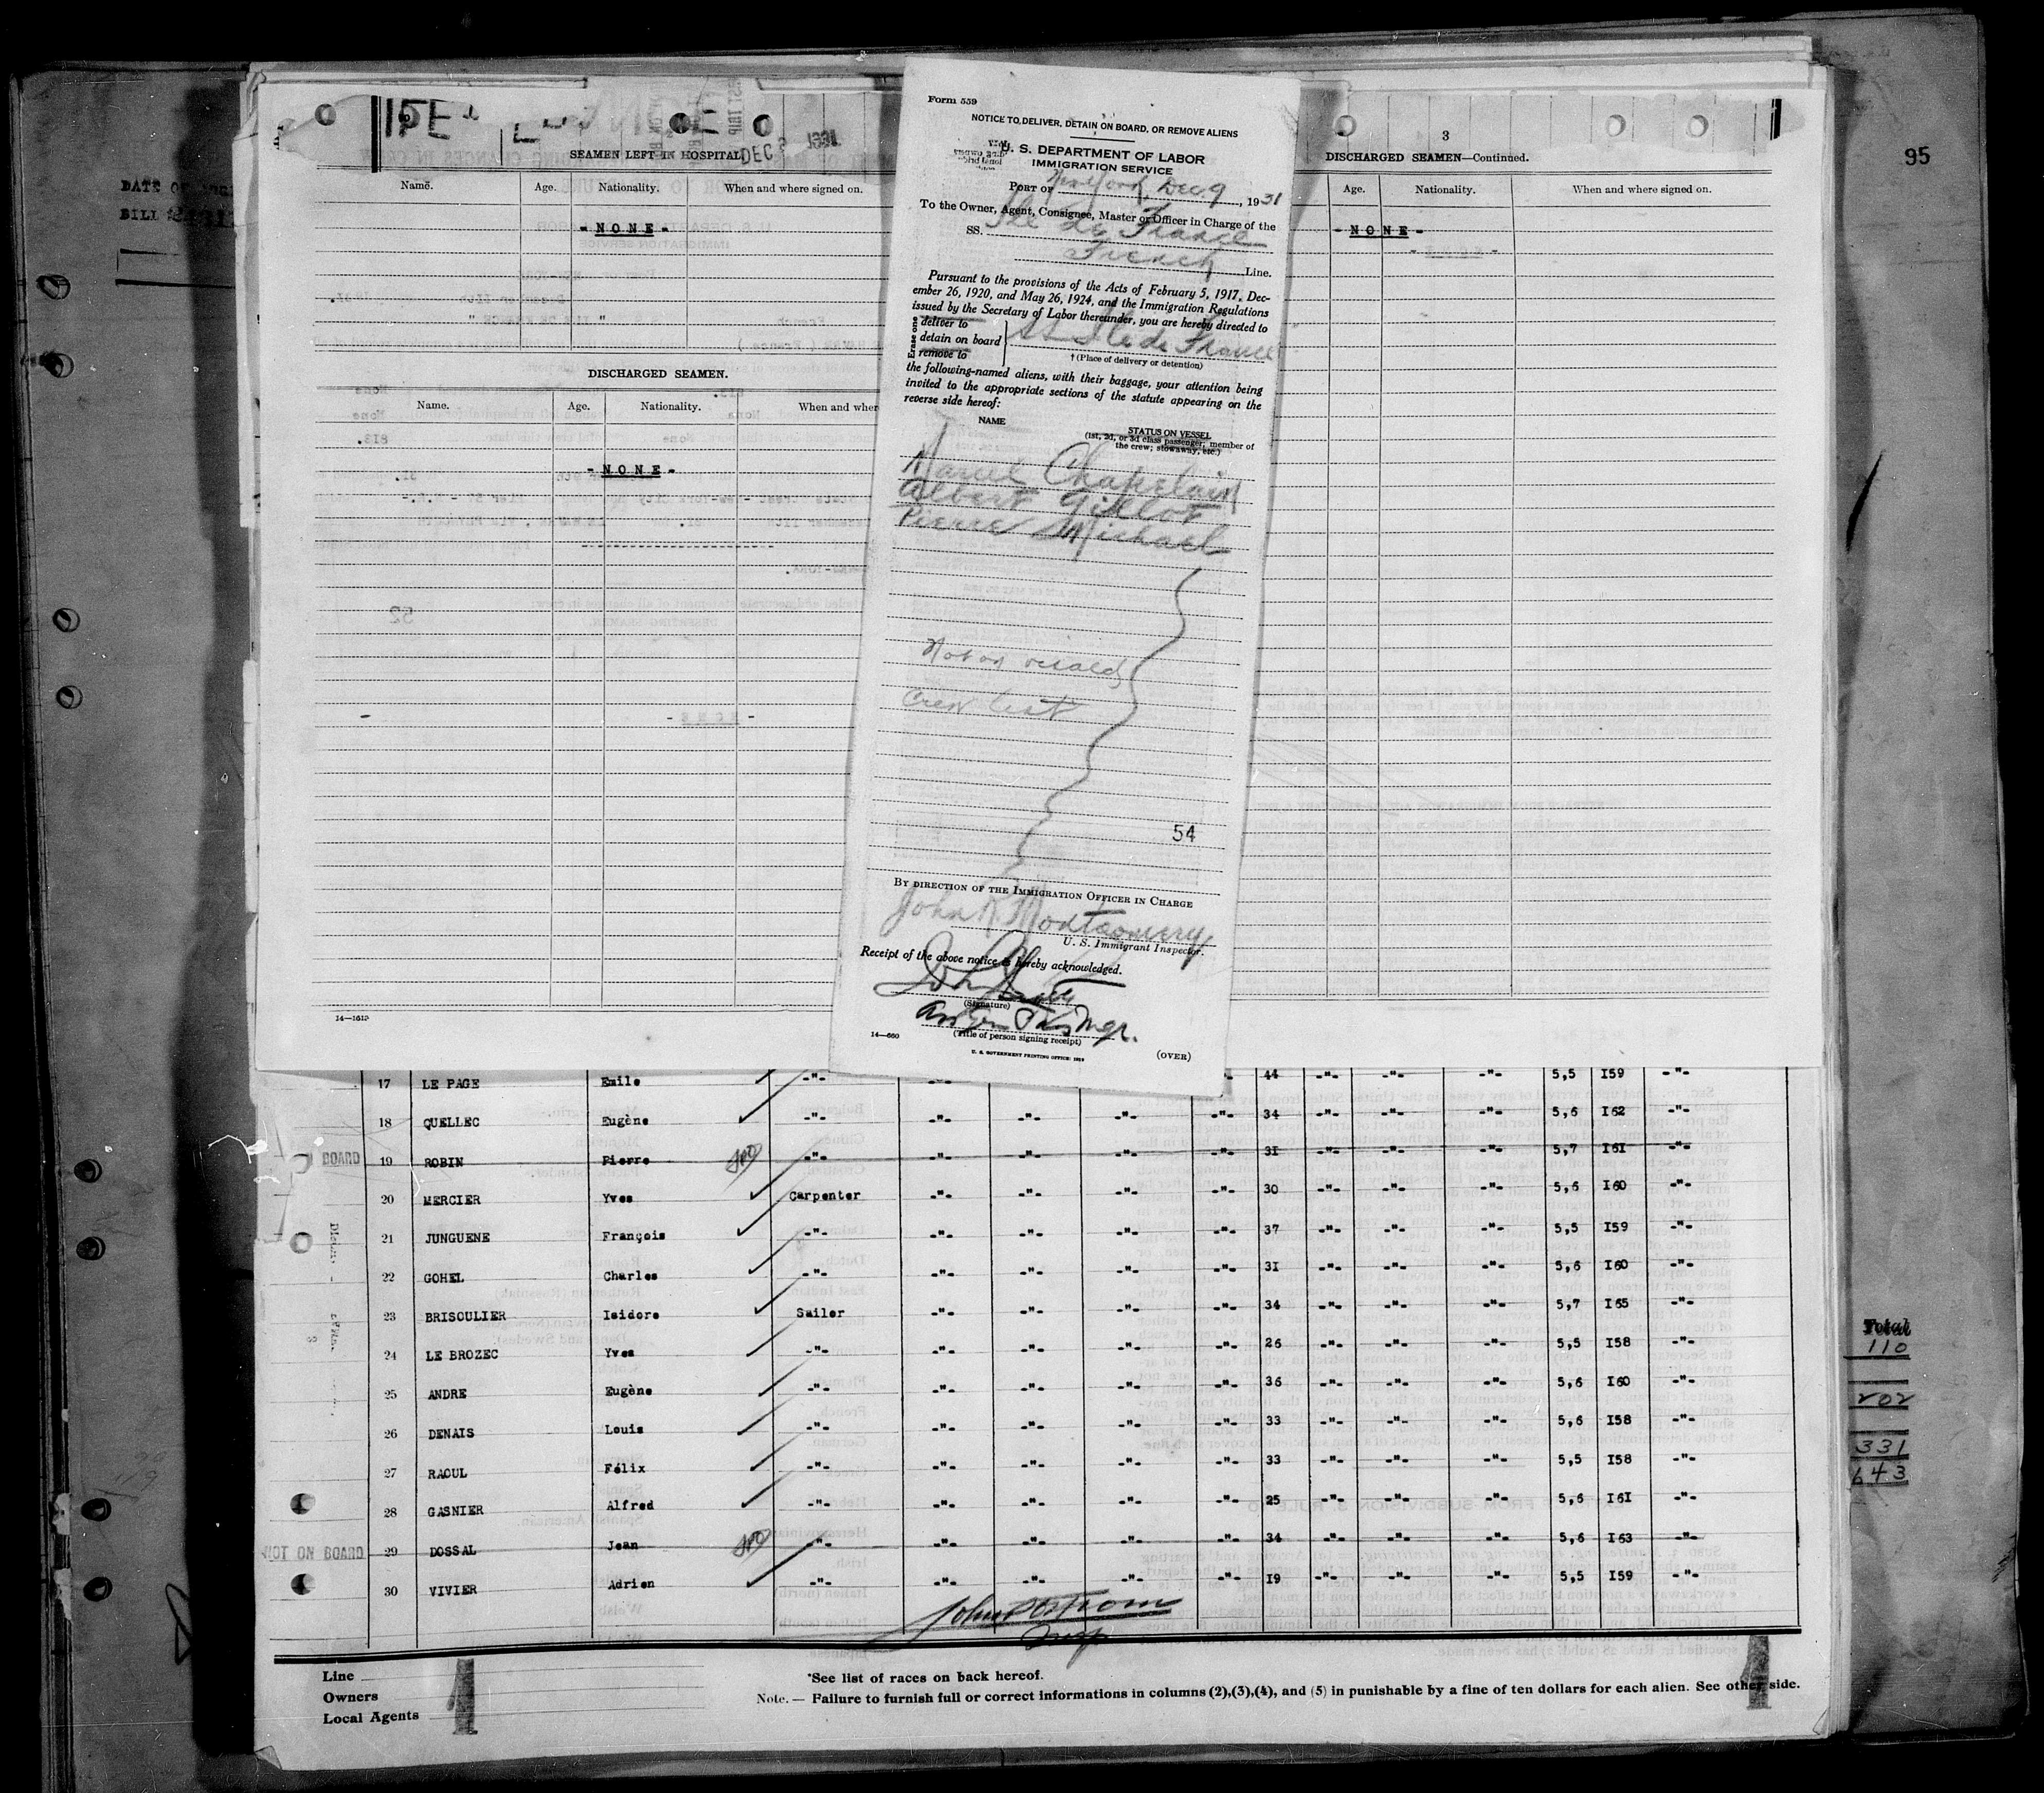 95
3
SEAMEN LEFT IN HOSPITAL
DEC 9 1931
Name. Age. Nationality. When and where signed on.
- N O N E -
DISCHARGED SEAMEN.
Name. Age. Nationality. When and wher
- N O N E -
14—1613
DISCHARGED SEAMEN—Continued.
Age. Nationality. When and where signed on.
- N O N E -
Form 559
NOTICE TO DELIVER, DETAIN ON BOARD, OR REMOVE ALIENS
U. S. DEPARTMENT OF LABOR
IMMIGRATION SERVICE
PORT OF New York, Dec 9, 1931
To the Owner, Agent, Consignee, Master or Officer in Charge of the
SS. Ile de France
French Line.
Pursuant to the provisions of the Acts of February 5, 1917, Dec-
ember 26, 1920, and May 26, 1924, and the Immigration Regulations
issued by the Secretary of Labor thereunder, you are hereby directed to
Erase one
deliver to
detain on board
remove to
SS Ile de France
† (Place of delivery or detention)
the following-named aliens, with their baggage, your attention being
invited to the appropriate sections of the statute appearing on the
reverse side hereof:
NAME STATUS ON VESSEL
(1st, 2d, or 3d class passenger; member of
the crew; stowaway, etc.)
Marcel Chapelain
Albert Gillot
Pierre Michael
Not on visaed
Crew list
54
BY DIRECTION OF THE IMMIGRATION OFFICER IN CHARGE
John R. Montgomery
U. S. Immigrant Inspector.
Receipt of the above notice is hereby acknowledged.
(Signature)
(Title of person signing receipt)
14—660
(OVER)
U. S. GOVERNMENT PRINTING OFFICE: 1929
17 LE PAGE Emile -"- -"- -"- 44 -"- -"- -"- 5,5 I59 -"-
18 QUELLEC Eugène -"- -"- -"- -"- -"- 34 -"- -"- -"- 5,6 I62 -"-
BOARD 19 ROBIN Pierre -"- -"- -"- -"- -"- 3I -"- -"- -"- 5,7 I6I -"-
20 MERCIER Yves Carpenter -"- -"- -"- -"- 30 -"- -"- -"- 5,6 I60 -"-
21 JUNGUENE François -"- -"- -"- -"- -"- 37 -"- -"- -"- 5,5 I59 -"-
22 GOHEL Charles -"- -"- -"- -"- -"- 3I -"- -"- -"- 5,6 I60 -"-
23 BRISOULIER Isidore Sailer -"- -"- -"- -"- 34 -"- -"- -"- 5,7 I65 -"-
24 LE BROZEC Yves -"- -"- -"- -"- -"- 26 -"- -"- -"- 5,5 I58 -"-
25 ANDRE Eugène -"- -"- -"- -"- -"- 36 -"- -"- -"- 5,6 I60 -"-
26 DENAIS Louis -"- -"- -"- -"- -"- 33 -"- -"- -"- 5,6 I58 -"-
27 RAOUL Félix -"- -"- -"- -"- -"- 33 -"- -"- -"- 5,5 I58 -"-
28 GASNIER Alfred -"- -"- -"- -"- -"- 25 -"- -"- -"- 5,6 I6I -"-
NOT ON BOARD 29 DOSSAL Jean -"- -"- -"- -"- -"- 34 -"- -"- -"- 5,6 I63 -"-
30 VIVIER Adrien -"- -"- -"- -"- -"- I9 -"- -"- -"- 5,5 I59 -"-
Total
110
202
331
643
Line
Owners
Local Agents
1
*See list of races on back hereof.
Note. — Failure to furnish full or correct informations in columns (2),(3),(4), and (5) in punishable by a fine of ten dollars for each alien. See other side.
1